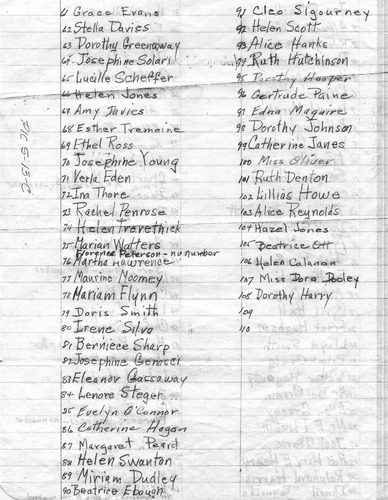 61 Grace Evans
62 Stella Davies
63 Dorothy Greenaway
64 Josephine Solari
65 Lucille Scheffer
66 Helen Jones
67 Amy Davies
68 Esther Tremaine
69 Ethel Ross
70 Josephine Young
71 Verla Eden
72 Ina Thore
73 Rachel Penrose
74 Helen Trevethick
75 Marian Watters
Florence Peterson - no number
76 Martha Lawrence
77 Maurine Noomey
78 Mariam Flynn
79 Doris Smith
80 Irene Silva
81 Berniece Sharp
82 Josephine
83 Eleanor Gassaway
84 Lenore Steger
85 Evelyn O'Connor
86 Catherine Hogan
87 Margaret Peard
88 Helen Swanton
89 Miriam Dudley
90 Beatrice Ebough
91 Cleo Sigourney
92 Helen Scott
93 Alice Hanks
94 Ruth Hutchinson
95 Dorothy Hooper
96 Gertrude Paine
97 Edna Maguire
98 Dorothy Johnson
99 Catherine Janes
100 Miss Oliver
101 Ruth Denton
102 Lillias Howe
103 Alice Reynolds
104 Hazel Jones
105 Beatrice Ott
106 Helen Calanan
107 Miss Dora Dooley
108 Dorothy Harry
109
110